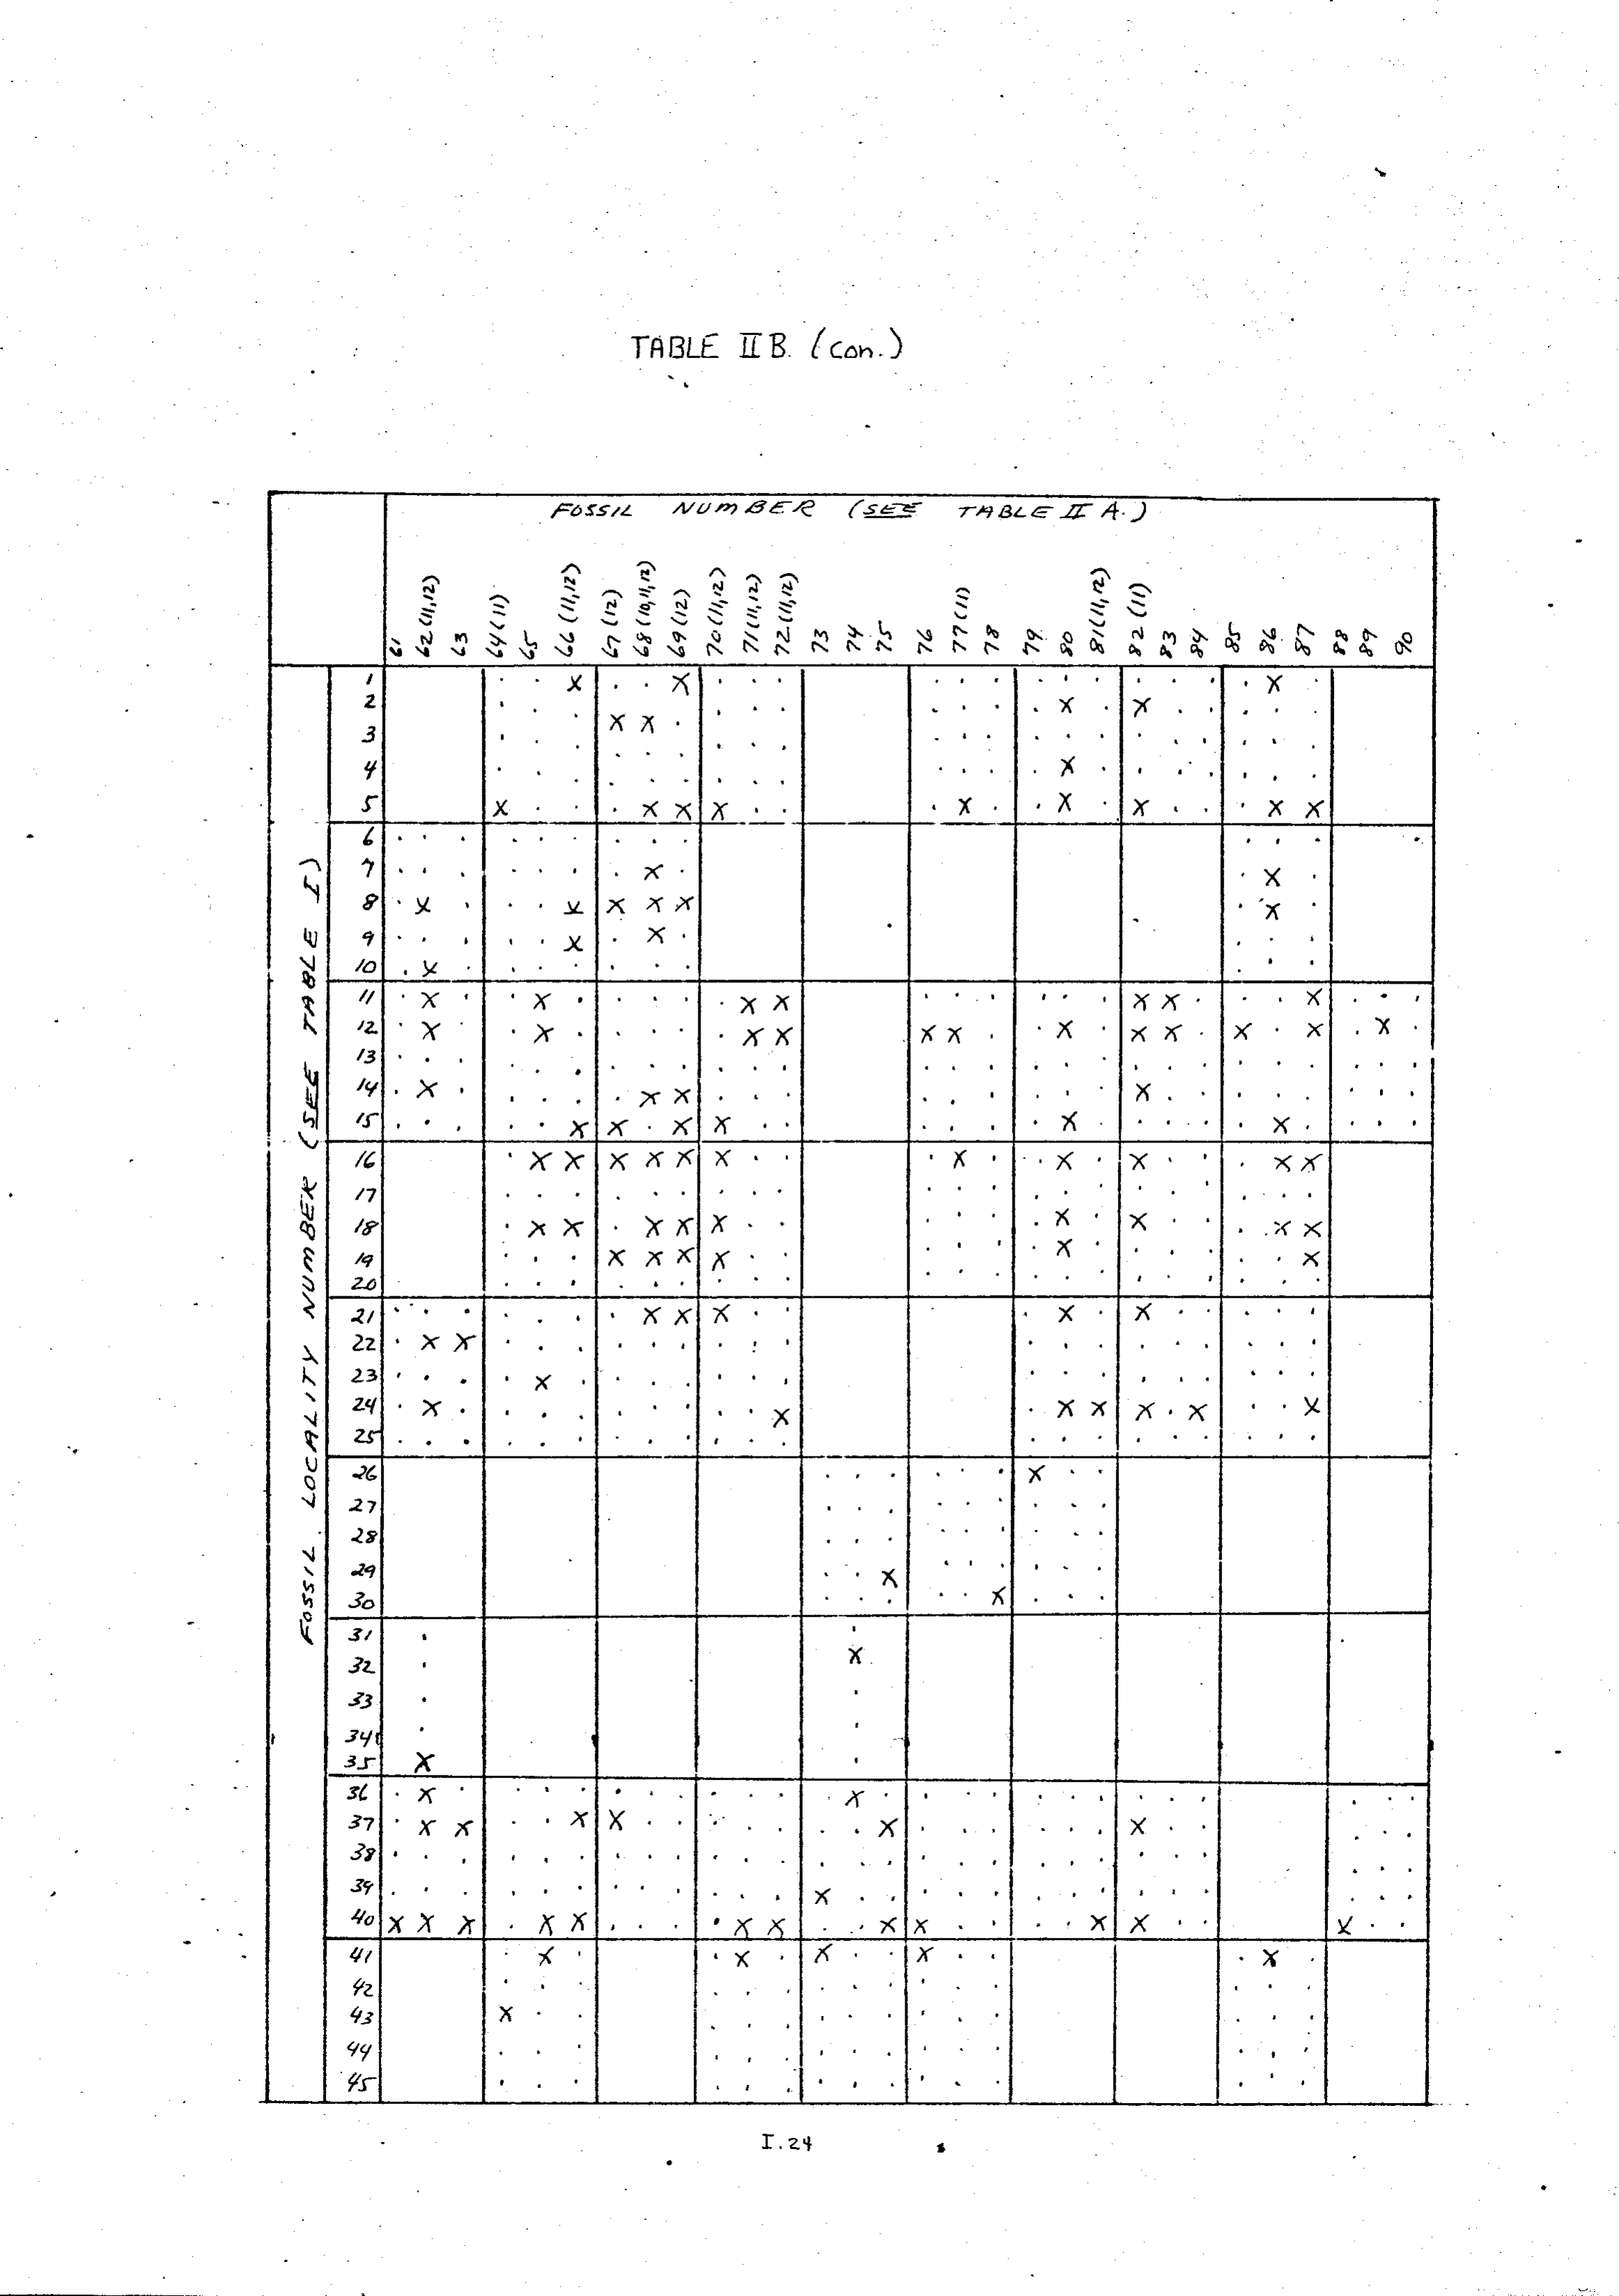 TABLE II B. (con.)
FOSSIL NUMBER (SEE TABLE II A.)
61 62 (11,12) 63 64 (11) 65 66 (11,12) 67 (12) 68 (10,11,12) 69 (12) 70 (11,12) 71 (11,12) 72 (11,12) 73 74 75 76 77 (11) 78 79 80 81 (11,12) 82 (11) 83 84 85 86 87 88 89 90
FOSSIL LOCALITY NUMBER (SEE TABLE I)
1 X X X
2 X X X X
3
4 X
5 X X X X X X X X X
6
7 X X
8 X X X X X X
9 X X
10 X
11 X X X X X X X
12 X X X X X X X X X X X X
13
14 X X X X
15 X X X X X X
16 X X X X X X X X X X X
17
18 X X X X X X X X X
19 X X X X X X
20
21 X X X X X
22 X X
23 X
24 X X X X X X X
25
26 X
27
28
29 X
30 X
31
32 X
33
34
35 X
36 X X
37 X X X X X X
38
39 X
40 X X X X X X X X X X X X
41 X X X X X
42
43 X
44
45
I.24